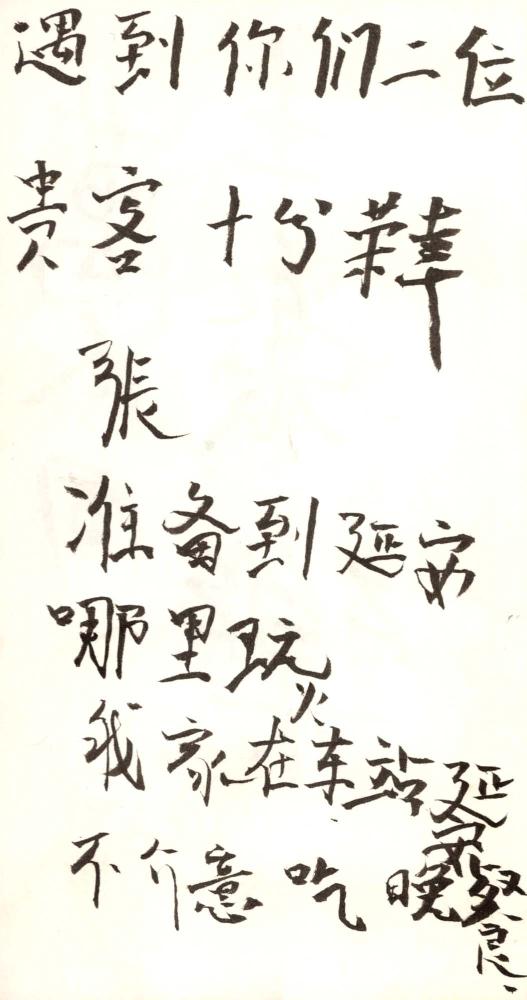 遇到你们二位
贵客十分荣幸
張
准备到延安
哪里玩
我家在火车站延安
不介意吃晚餐